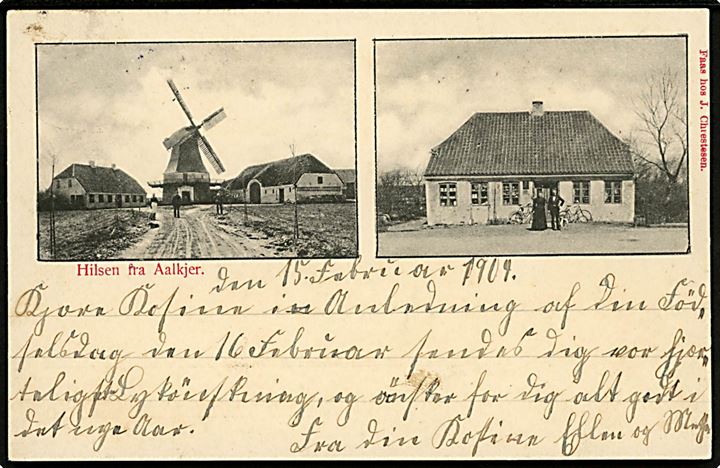 Faas hos J. Chrestesen.
Hilsen fra Aalkjer.
den 15. Februar 1904.
Kjære Kosine i Anledning af Din Föd-
selsdag den 16 Februar sendes dig vor hjær-
teligste Lykönskning, og önsker for dig alt godt i
det nye Aar.
Fra din Kosine Ellen og